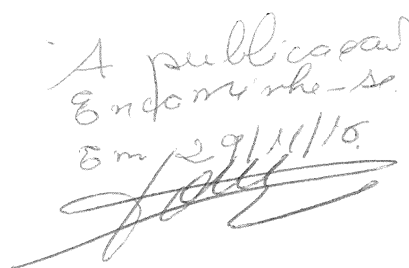 À publicação
Encaminhe-se.
Em 29/11/16.